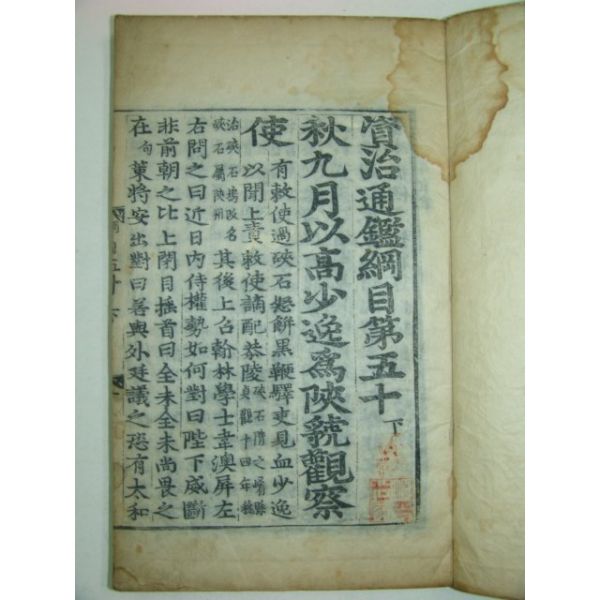 資治通鑑綱目第五十下
秋九月以高少逸爲陝虢觀察
使
有敕使過硤石怒餠黑鞭驛吏見血少逸
以聞上責敕使謫配恭陵
硤石隋之崤縣
貞觀十四年移
治硤石塢改名
硤石屬陝州
其後上召翰林學士韋澳屛左
右問之曰近日內侍權勢如何對曰陛下威斷
非前朝之比上閉目搖首曰全未全未尚畏之
在
句
策將安出對曰若與外廷議之恐有太和